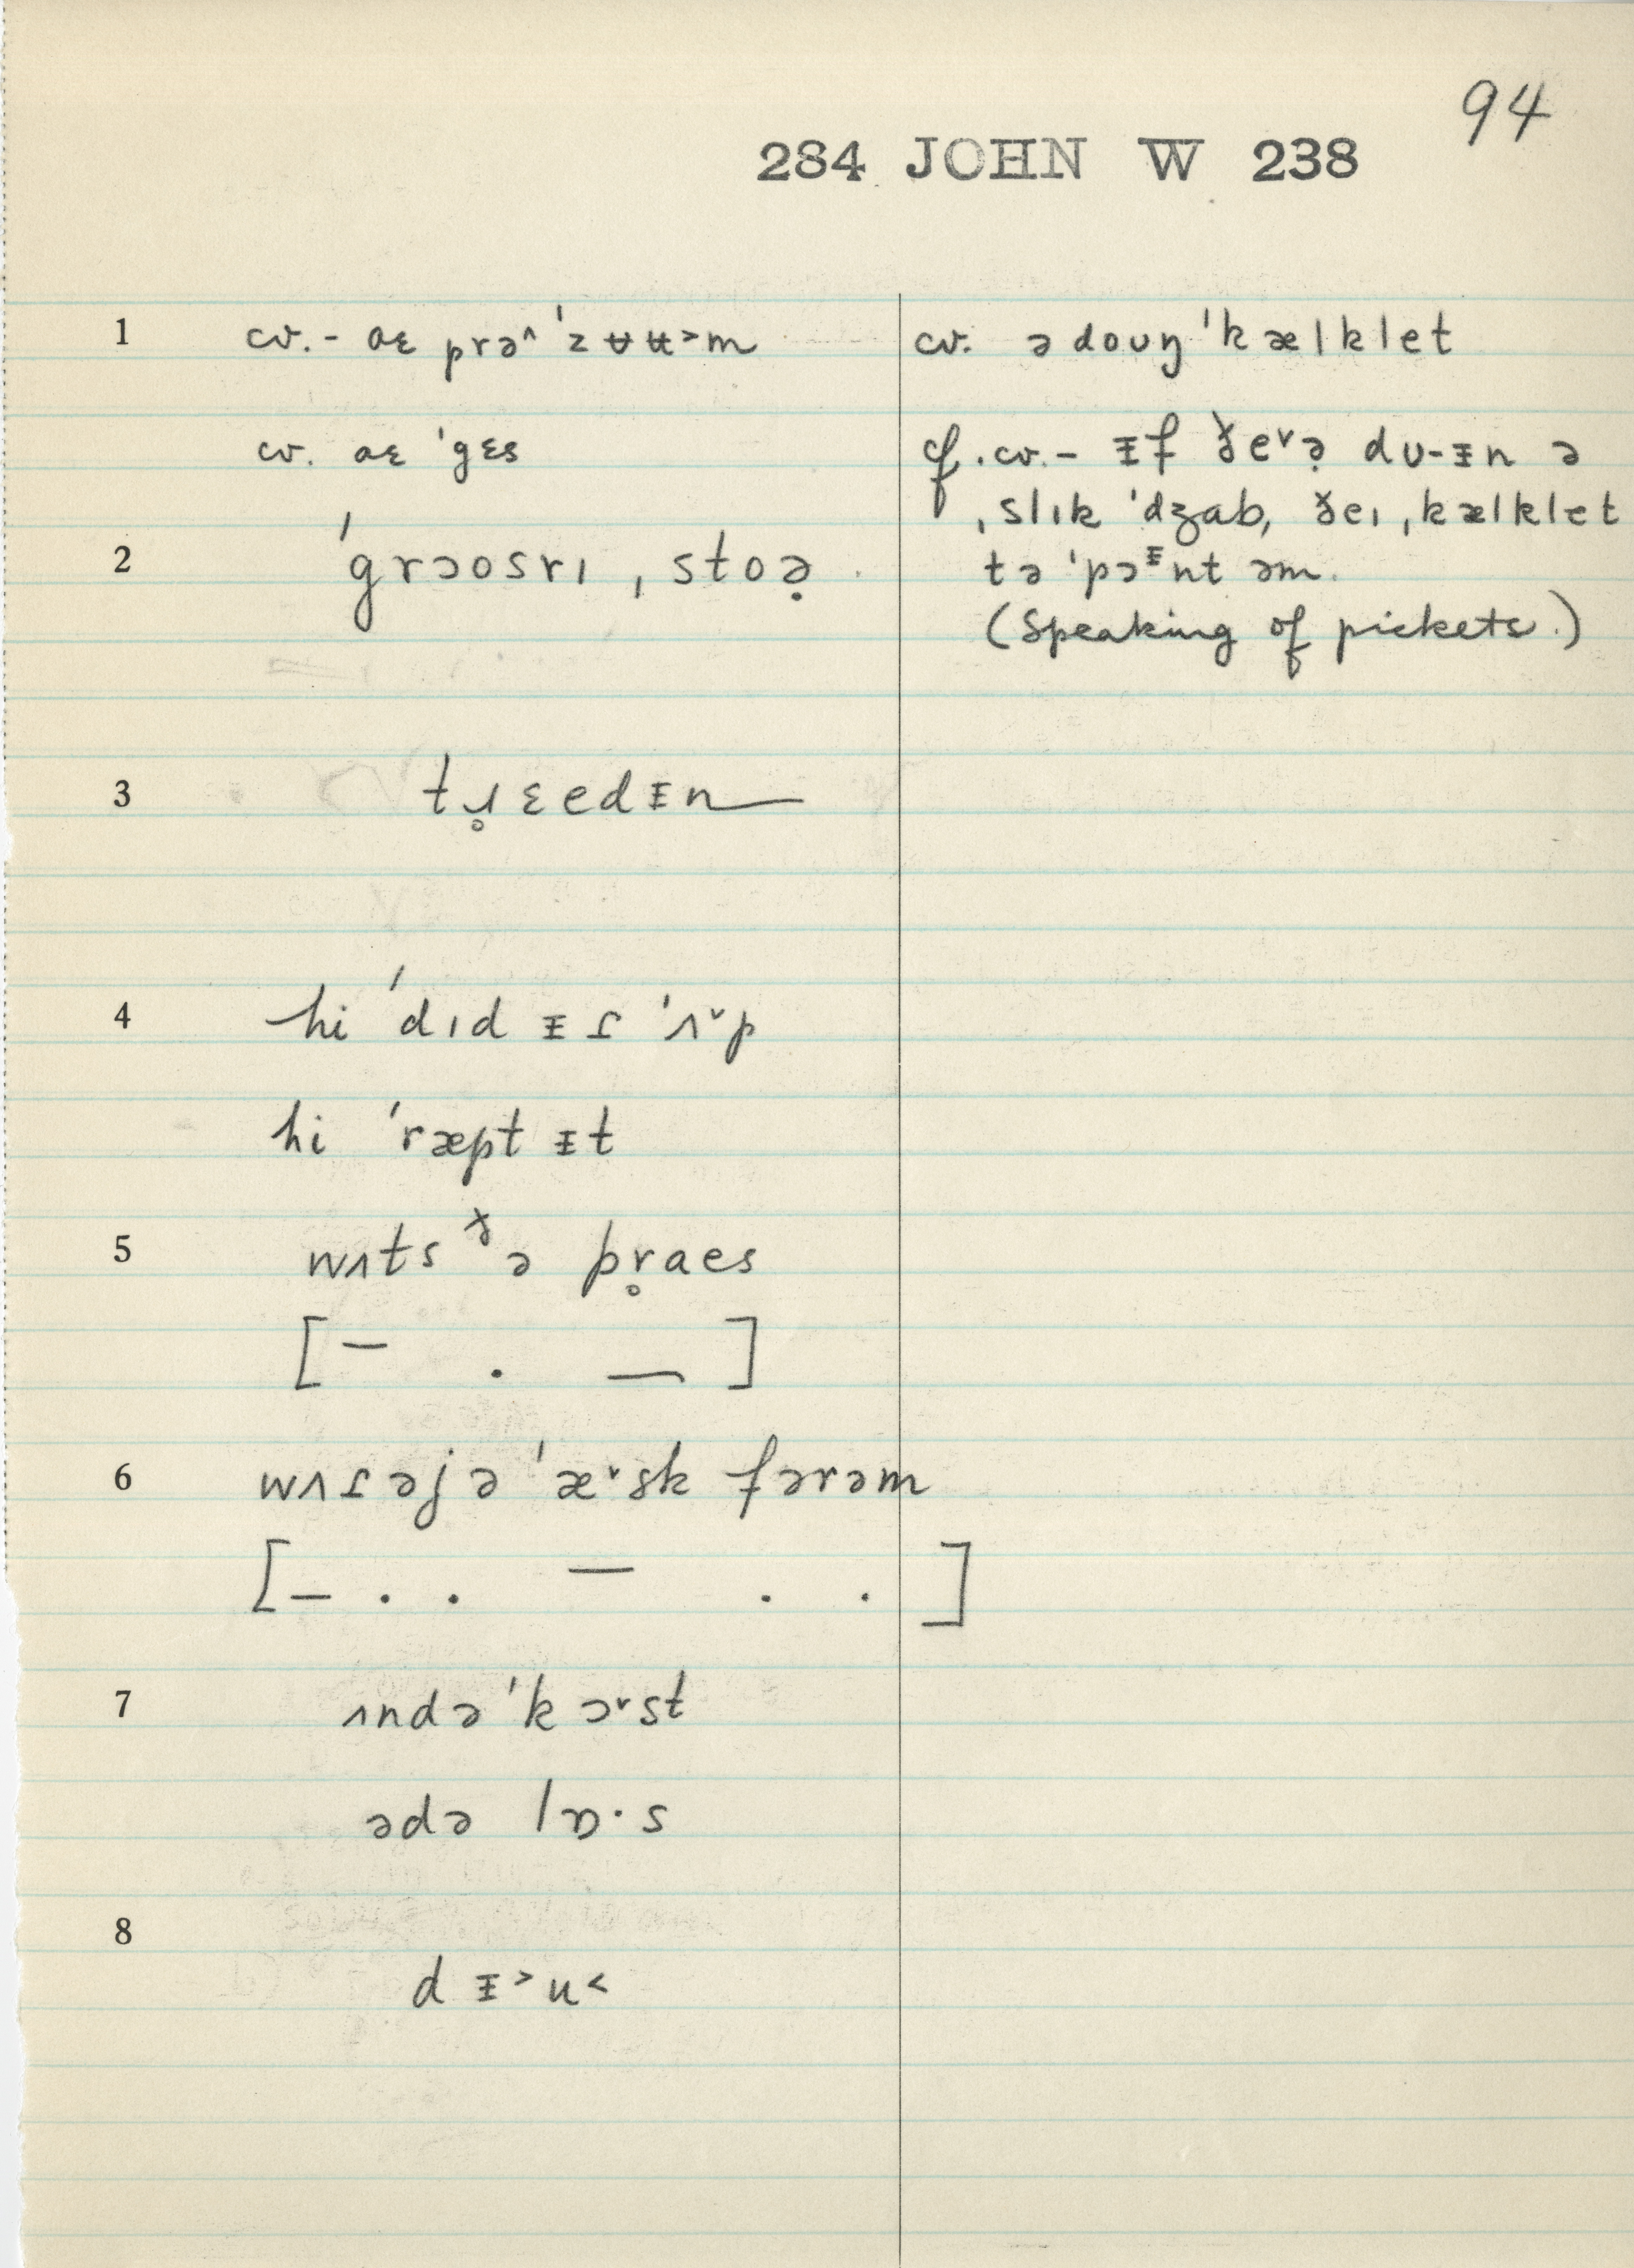 94
284 JOHN W 238
1 cv. - aɛ prə^ˈzʉʉ˃m
cv. aɛ ˈgɛs
2 ˈgrɔosrɪ ˌstoə̣
3 tɹ̥ɛedᵻn—
4 hi ˈdɪd ᵻɾ ˈʌ˅p
hi ˈræpt ᵻt
5 wʌts ᵟə pr̥aes
[– . –]
6 wʌɾəjə ˈæ˅sk fərəm
[– . . – . .]
7 ʌndə ˈkɔ˅st
ədə lɒ·s
8 dᵻ˃u˂
cv. ə doʊŋ ˈkælklet
cf. cv. - ᵻf ðe˅ə̣ dʊ-ᵻn ə
ˌslɪk ˈdʒab, ðeɪ ˌkælklet
tə ˈpɔᵻnt əm.
(Speaking of pickets.)